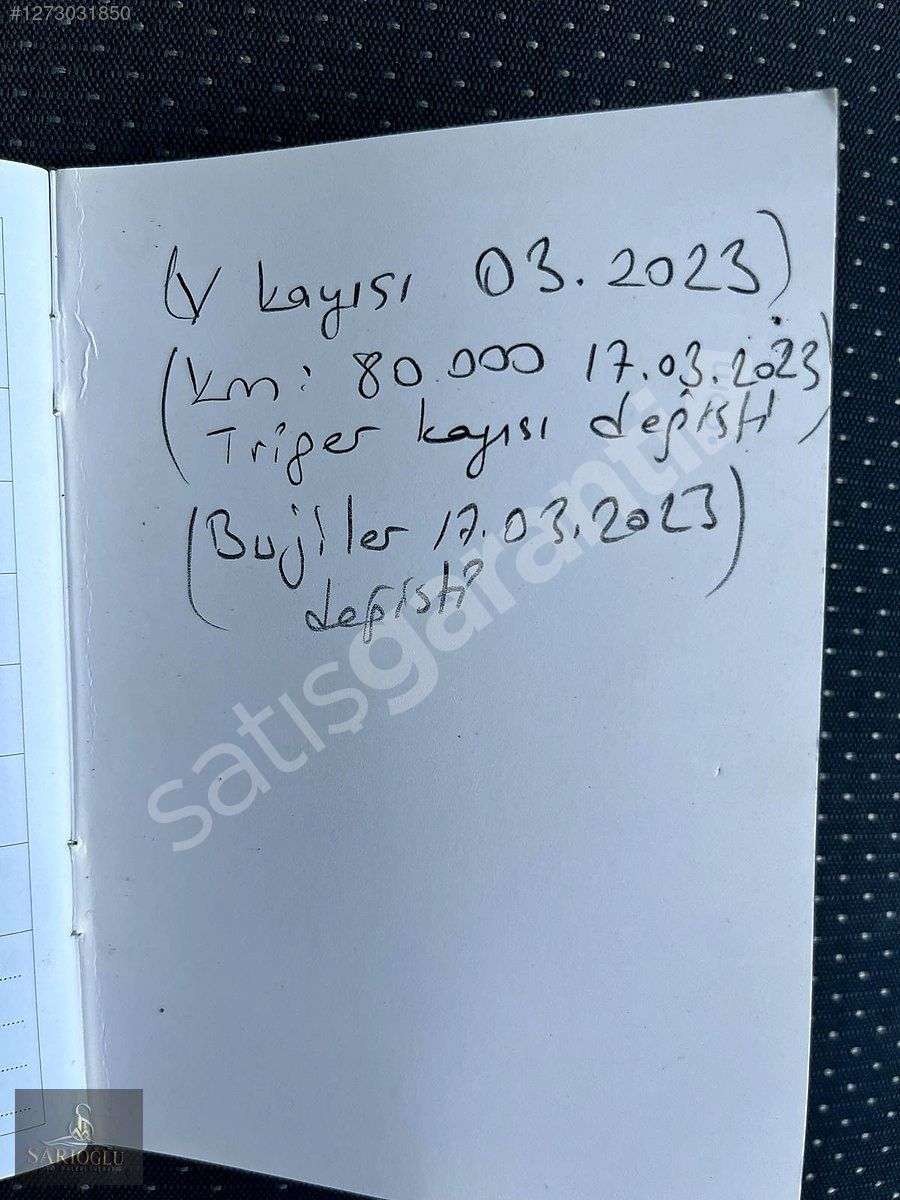 #1273031850
(V kayısı 03.2023)
(km: 80.000 17.03.2023
Triger kayısı değişti)
(Bujiler 17.03.2023)
değişti
satışgaranti
SARIOĞLU